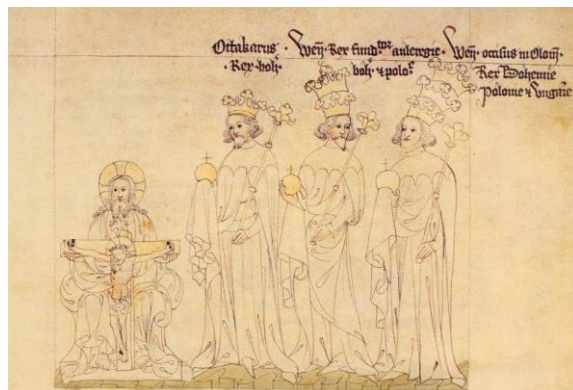 Ottakarus
Rex boh
Wen Rex fund tor auleregie
boh et polo
Wen occisus in Olom
Rex Bohemie
Polonie et Ungarie